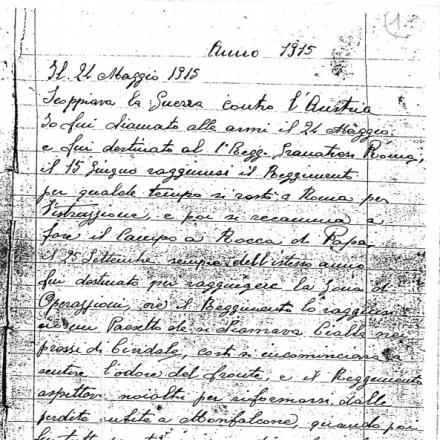 1
Anno 1915
Il 24 Maggio 1915
Scoppiava la Guerra contro l'Austria
Io fui diamato alle armi il 24 Maggio
e fui destinato al 1° Regg. Granatieri Roma,
il 15 Giugno raggiunsi il Reggimento
per qualde tempo si restò a Roma per
l'istruzzione, e poi si recamma a
fare il Campo a Rocca di Papa
il 25 Settembre sempre dell'istesso anno
fui destinato per raggiungere la Zona di
Operazzioni, ove il Reggimento lo raggiunsi
in un Paesetto de si diamava Cialla nei
pressi di Cividale, costì si incominciava a
sentire l'odore del fronte, e il Reggimento
aspettava noialtri per riformarsi dalle
perdite subite a Monfalcone, quando poi